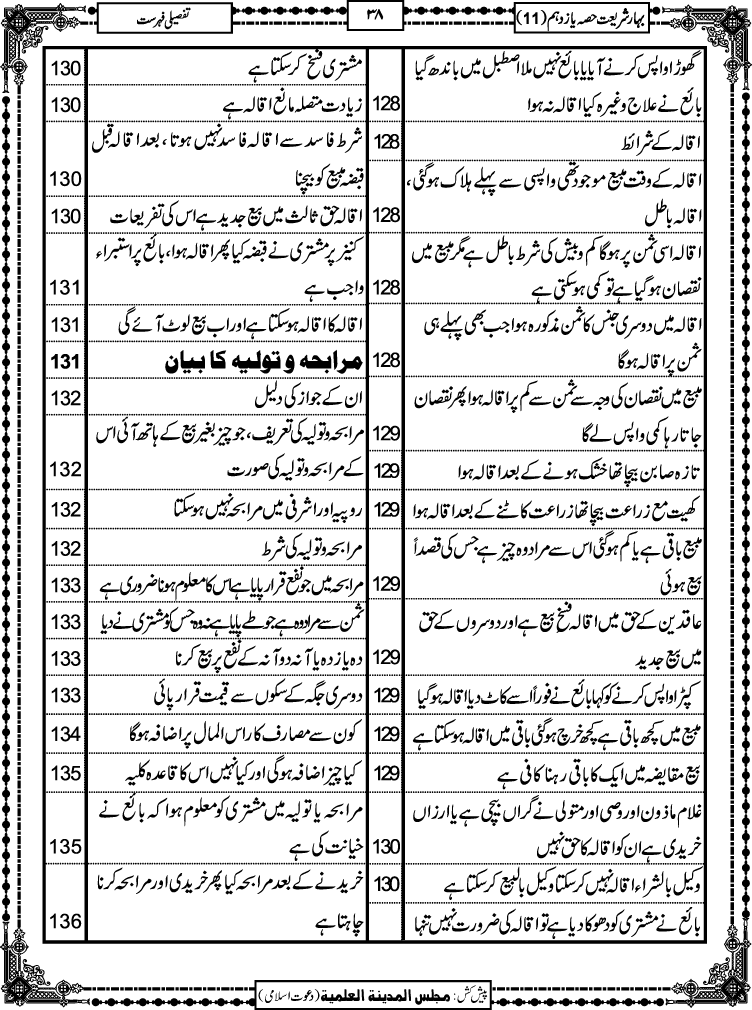 بہار شریعت حصہ یازدہم (11)
۳۸
تفصیلی فہرست
گھوڑا واپس کرنے آیا بائع نہیں ملا اصطبل میں باندھ گیا
بائع نے علاج وغیرہ کیا اقالہ نہ ہوا 128
اقالہ کے شرائط 128
اقالہ کے وقت مبیع موجود تھی واپسی سے پہلے ہلاک ہوگئی،
اقالہ باطل 128
اقالہ اسی ثمن پر ہوگا کم وبیش کی شرط باطل ہے مگر مبیع میں
نقصان ہوگیا ہے تو کمی ہوسکتی ہے 128
اقالہ میں دوسری جنس کا ثمن مذکور ہوا جب بھی پہلے ہی
ثمن پر اقالہ ہوگا 128
مبیع میں نقصان کی وجہ سے ثمن سے کم پر اقالہ ہوا پھر نقصان
جاتا رہا کمی واپس لے گا 129
تازہ صابن بیچا تھا خشک ہونے کے بعد اقالہ ہوا 129
کھیت مع زراعت بیچا تھا زراعت کاٹنے کے بعد اقالہ ہوا 129
مبیع باقی ہے یا کم ہوگئی اس سے مراد وہ چیز ہے جس کی قصداً
بیع ہوئی 129
عاقدین کے حق میں اقالہ فسخ بیع ہے اور دوسروں کے حق
میں بیع جدید 129
کپڑا واپس کرنے کو کہا بائع نے فوراً اسے کاٹ دیا اقالہ ہوگیا 129
مبیع میں کچھ باقی ہے کچھ خرچ ہوگئی باقی میں اقالہ ہوسکتا ہے 129
بیع مقایضہ میں ایک کا باقی رہنا کافی ہے 129
غلام ماذون اور وصی اور متولی نے گراں بیچی ہے یا ارزاں
خریدی ہے ان کو اقالہ کا حق نہیں 130
وکیل بالشراء اقالہ نہیں کرسکتا وکیل بالبیع کرسکتا ہے 130
بائع نے مشتری کو دھوکا دیا ہے تو اقالہ کی ضرورت نہیں تنہا
مشتری فسخ کرسکتا ہے 130
زیادت متصلہ مانع اقالہ ہے 130
شرط فاسد سے اقالہ فاسد نہیں ہوتا، بعد اقالہ قبل
قبضہ مبیع کو بیچنا 130
اقالہ حق ثالث میں بیع جدید ہے اس کی تفریعات 130
کنیز پر مشتری نے قبضہ کیا پھر اقالہ ہوا، بائع پر استبراء
واجب ہے 131
اقالہ کا اقالہ ہوسکتا ہے اور اب بیع لوٹ آئے گی 131
مرابحہ و تولیہ کا بیان 131
ان کے جواز کی دلیل 132
مرابحہ و تولیہ کی تعریف، جو چیز بغیر بیع کے ہاتھ آئی اس
کے مرابحہ و تولیہ کی صورت 132
روپیہ اور اشرفی میں مرابحہ نہیں ہوسکتا 132
مرابحہ و تولیہ کی شرط 132
مرابحہ میں جو نفع قرار پایا ہے اس کا معلوم ہونا ضروری ہے 133
ثمن سے مراد وہ ہے جو طے پایا ہے نہ وہ جس کو مشتری نے دیا 133
دہ یازدہ یا آنہ دو آنہ کے نفع پر بیع کرنا 133
دوسری جگہ کے سکوں سے قیمت قرار پائی 133
کون سے مصارف کا راس المال پر اضافہ ہوگا 134
کیا چیز اضافہ ہوگی اور کیا نہیں اس کا قاعدہ کلیہ 135
مرابحہ یا تولیہ میں مشتری کو معلوم ہوا کہ بائع نے
خیانت کی ہے 135
خریدنے کے بعد مرابحہ کیا پھر خریدی اور مرابحہ کرنا
چاہتا ہے 136
پیش کش: مجلس المدینة العلمیة (دعوت اسلامی)